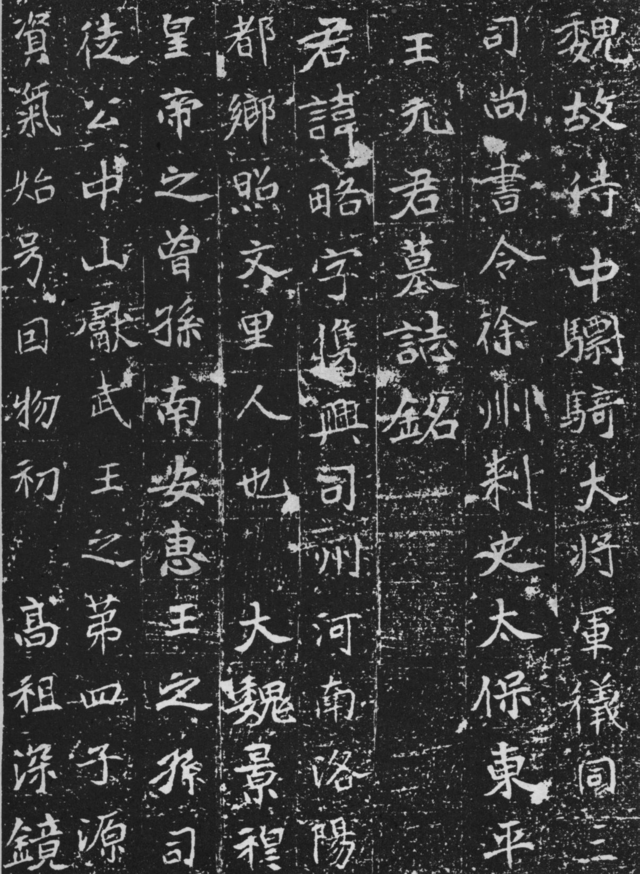 魏故侍中驃騎大將軍儀同三
司尚書令徐州刺史太保東平
王元君墓誌銘
君諱略字儁興司州河南洛陽
都鄉照文里人也大魏景穆
皇帝之曾孫南安惠王之孫司
徒公中山獻武王之第四子源
資氣始号因物初高祖深鏡